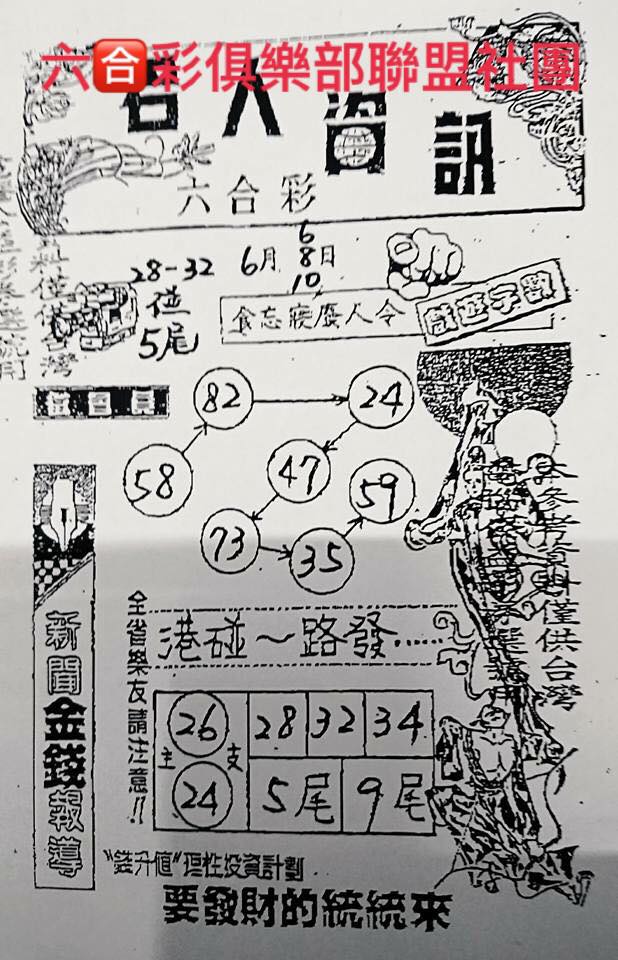 六合彩俱樂部聯盟社團
名人資訊
六合彩
6月 6 8 10日
28-32
位
5尾
食忘寢廢人令
戲遊字數
82
24
58
47
59
73
35
新聞金錢報導
全省樂友請注意!!
港碰～路發......
主 26 支 28 32 34
24 5尾 9尾
本參考資料僅供台灣
"錢升值"理性投資計劃
要發財的統統來